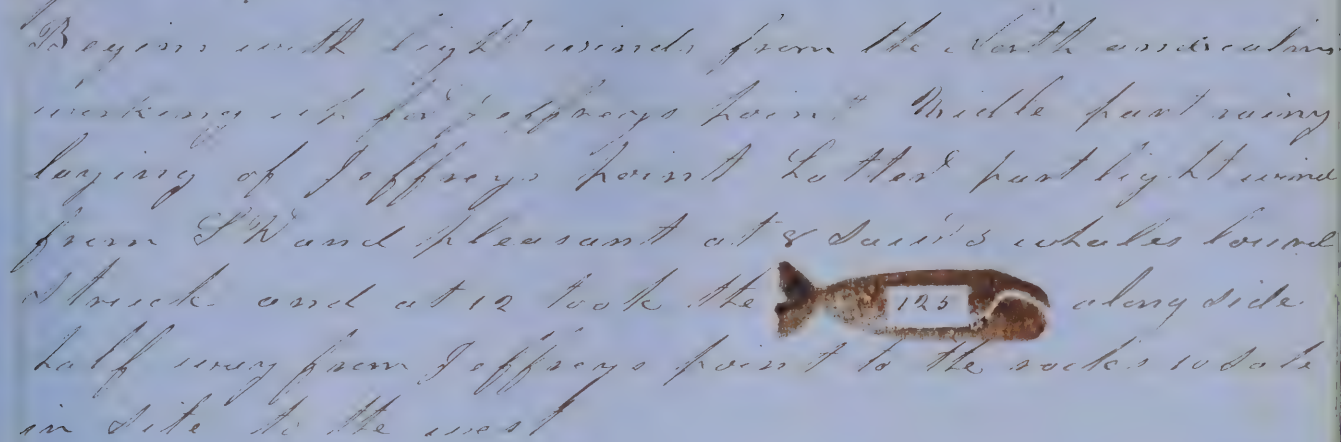 Begins with light winds from the North and calms
working up for Jeffreys point Midle part rainy
laying of Jeffreys point Latter part light wind
from SW and pleasant at 8 saw 3 whales lourd
Struck and at 12 took the 125 along side
half way from Jeffreys point to the rocks 10 Sale
in Site to the west